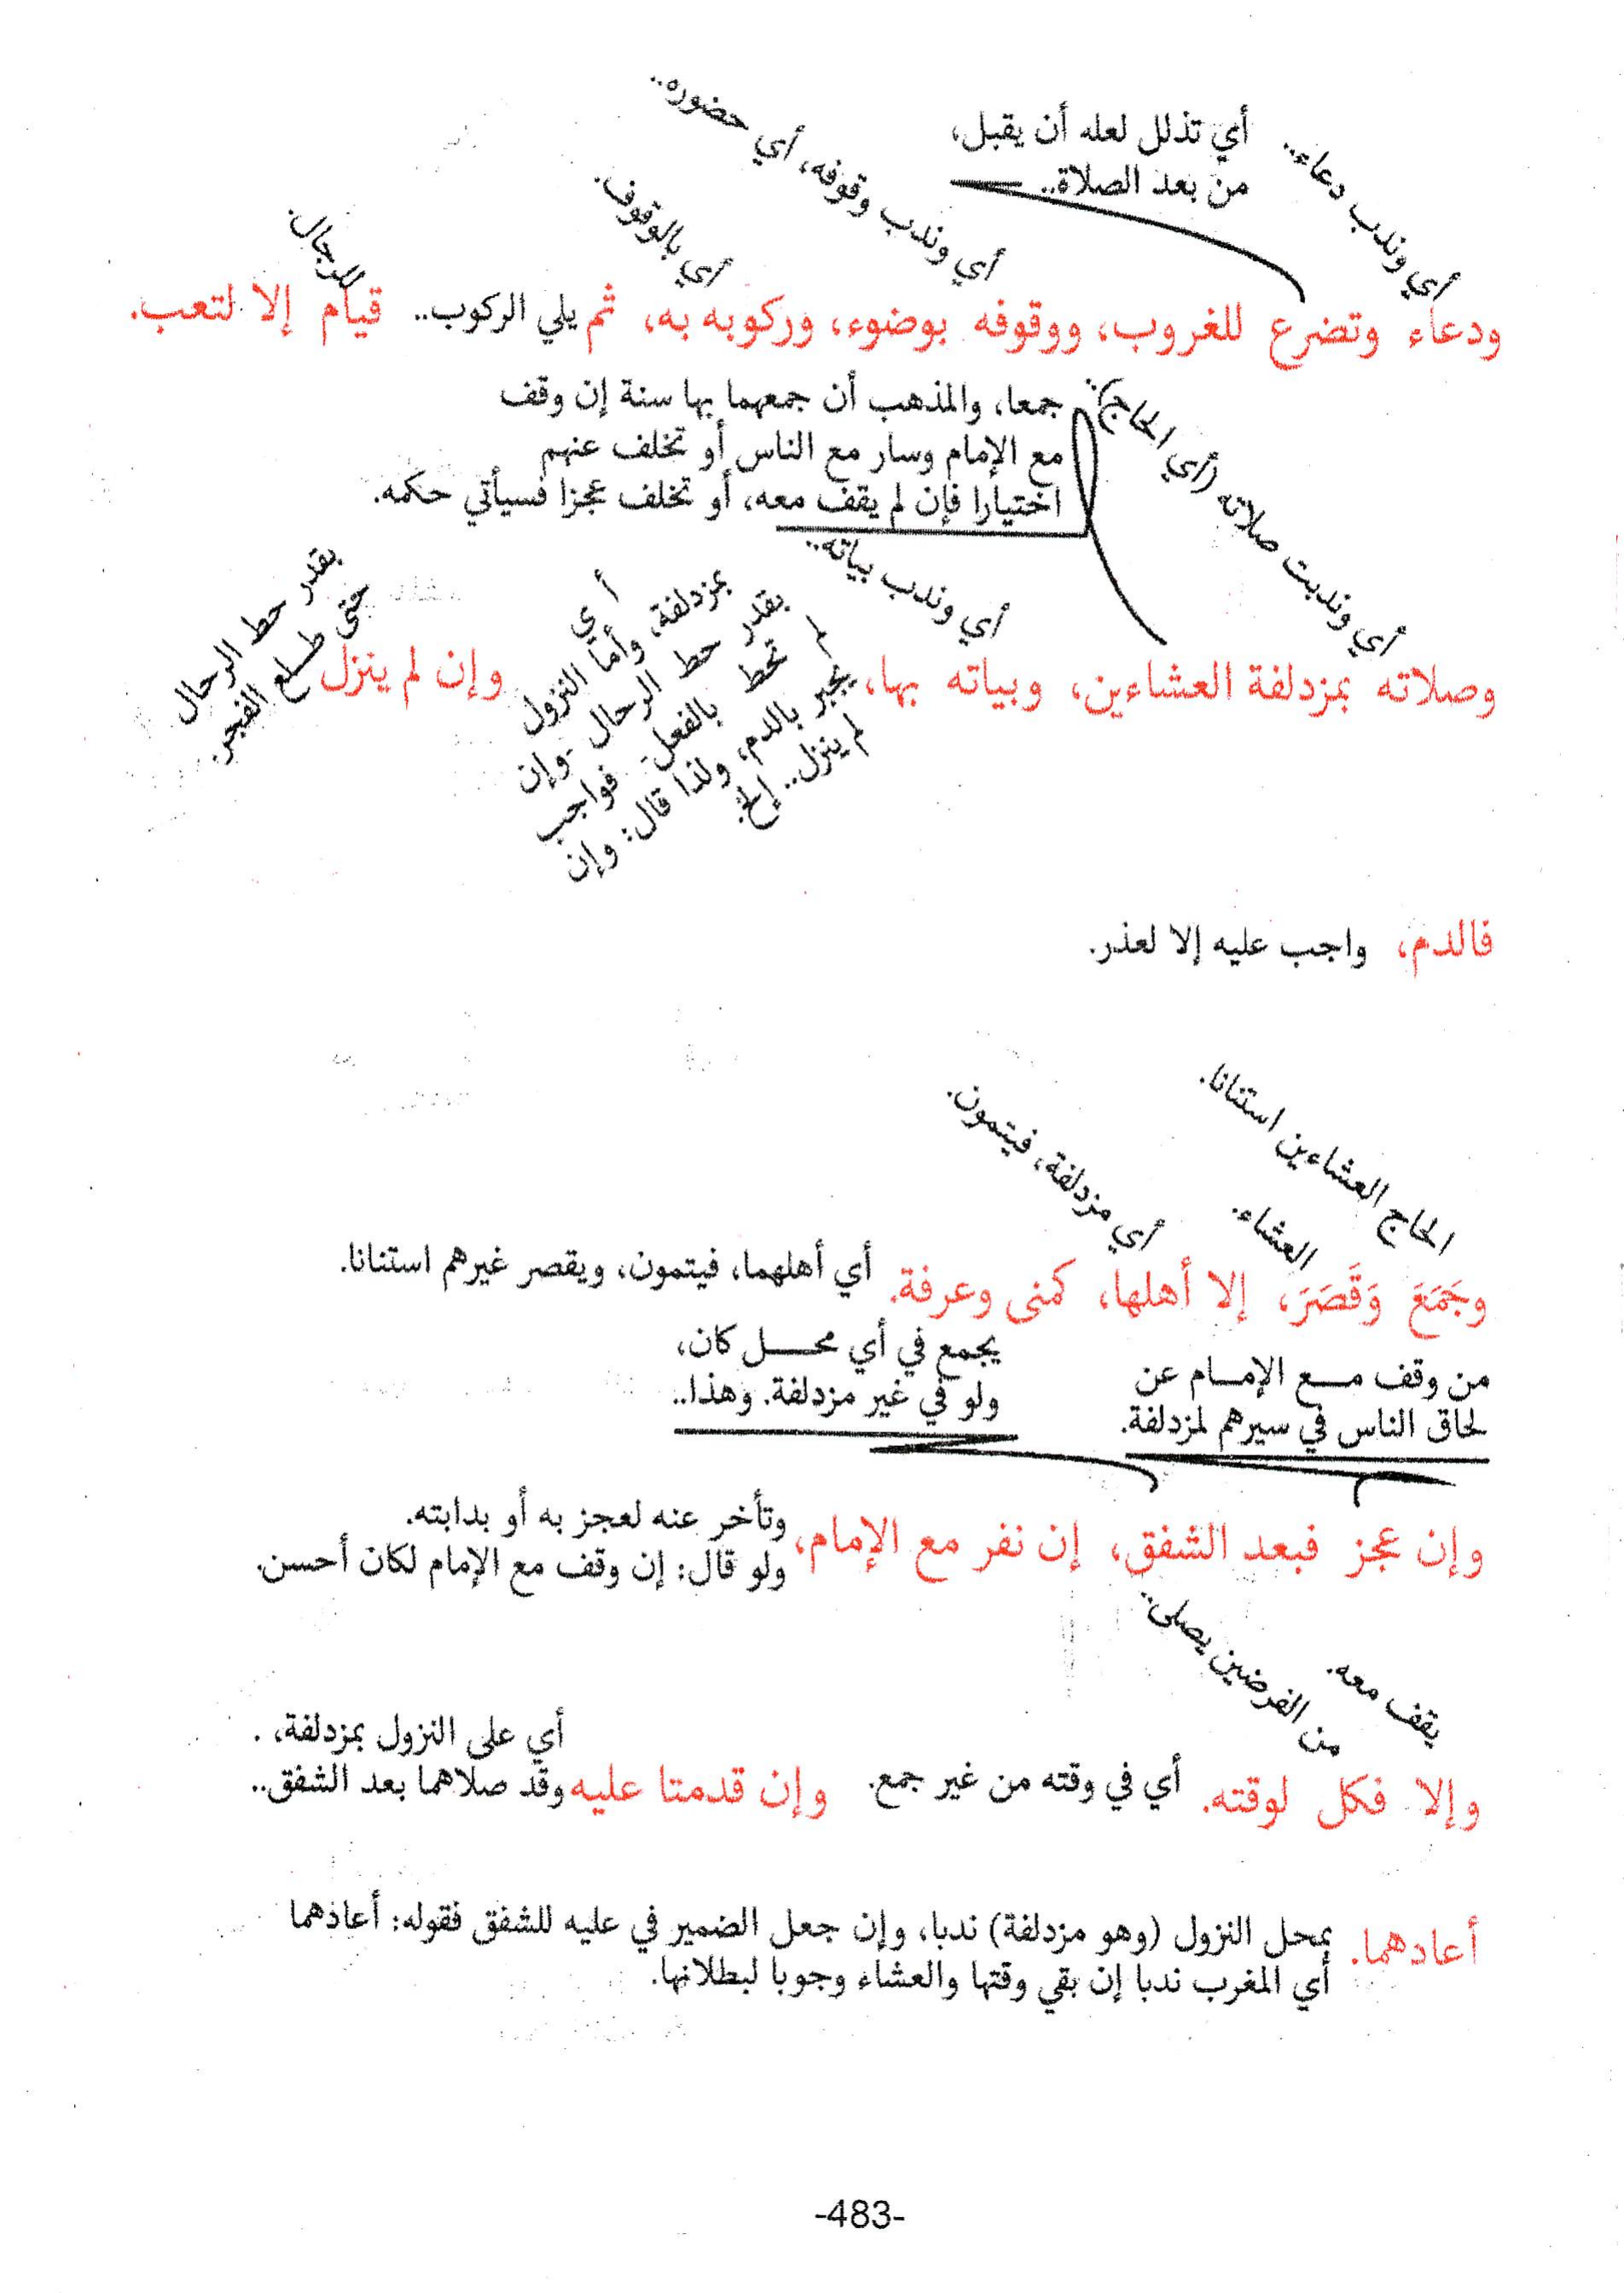 أي وندب دعاء..
أي تذلل لعله أن يقبل،
من بعد الصلاة..
أي وندب وقوفه، أي حضوره..
أي بالوقوف.
للرجال.
ودعاء وتضرع للغروب، ووقوفه بوضوء، وركوبه به، ثم يلي الركوب.. قيام إلا لتعب.
أي وندبت صلاته (أي الحاج).
جمعا، والمذهب أن جمعهما بها سنة إن وقف
مع الإمام وسار مع الناس أو تخلف عنهم
اختيارا فإن لم يقف معه، أو تخلف عجزا فسيأتي حكمه.
أي وندب بياته..
أي
بمزدلفة، وأما النزول
بقدر حط الرحال -وإن
لم تحط بالفعل- فواجب
يجبر بالدم، ولذا قال: وإن
لم ينزل.. إلخ.
بقدر حط الرحال
حتى طلع الفجر.
وصلاته بمزدلفة العشاءين، وبياته بها، وإن لم ينزل
فالدم، واجب عليه إلا لعذر.
الحاج العشاءين استنانا.
العشاء.
أي مزدلفة، فيتمون.
وجَمَعَ وَقَصَرَ، إلا أهلها، كمنى وعرفة. أي أهلهما، فيتمون، ويقصر غيرهم استنانا.
من وقف مع الإمام عن
لحاق الناس في سيرهم لمزدلفة.
يجمع في أي محل كان،
ولو في غير مزدلفة. وهذا..
وإن عجز فبعد الشفق، إن نفر مع الإمام، وتأخر عنه لعجز به أو بدابته.
ولو قال: إن وقف مع الإمام لكان أحسن.
يقف معه.
من الفرضين يصلى..
وإلا فكل لوقته. أي في وقته من غير جمع. وإن قدمتا عليه أي على النزول بمزدلفة، .
وقد صلاهما بعد الشفق..
أعادهما. بمحل النزول (وهو مزدلفة) ندبا، وإن جعل الضمير في عليه للشفق فقوله: أعادهما
أي المغرب ندبا إن بقي وقتها والعشاء وجوبا لبطلانها.
-483-